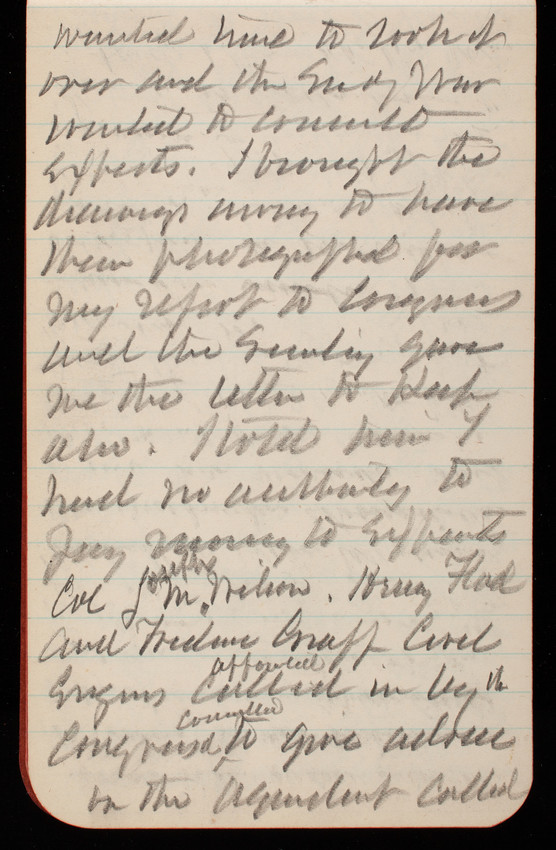 wanted time to look it
over and the Secy War
wanted to consult
Experts. I brought the
drawings away to have
them photographed for
my report to Congress
and the Secretary gave
me the letter to keep
also. I told him I
had no authority to
pay money to Experts
Joseph
Col J M. Wilson. Henry Flad
and Fredric Graff Civil
appointed
Engrs called in by the
Committee
Congress to give advice
on the Aqueduct called